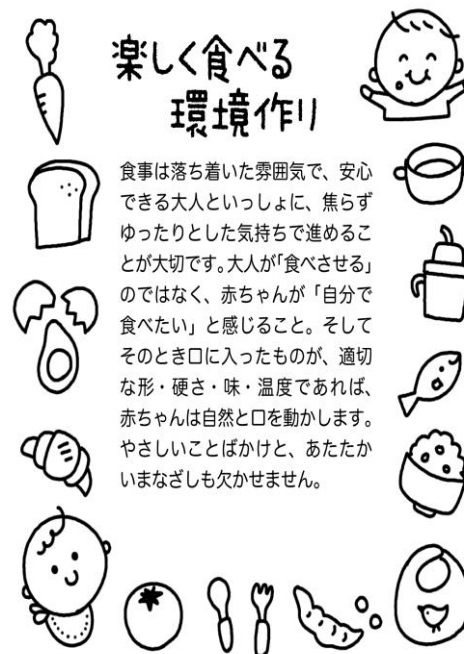 楽しく食べる
環境作り
食事は落ち着いた雰囲気で、安心
できる大人といっしょに、焦らず
ゆったりとした気持ちで進めるこ
とが大切です。大人が「食べさせる」
のではなく、赤ちゃんが「自分で
食べたい」と感じること。そして
そのとき口に入ったものが、適切
な形・硬さ・味・温度であれば、
赤ちゃんは自然と口を動かします。
やさしいことばかけと、あたたか
いまなざしも欠かせません。